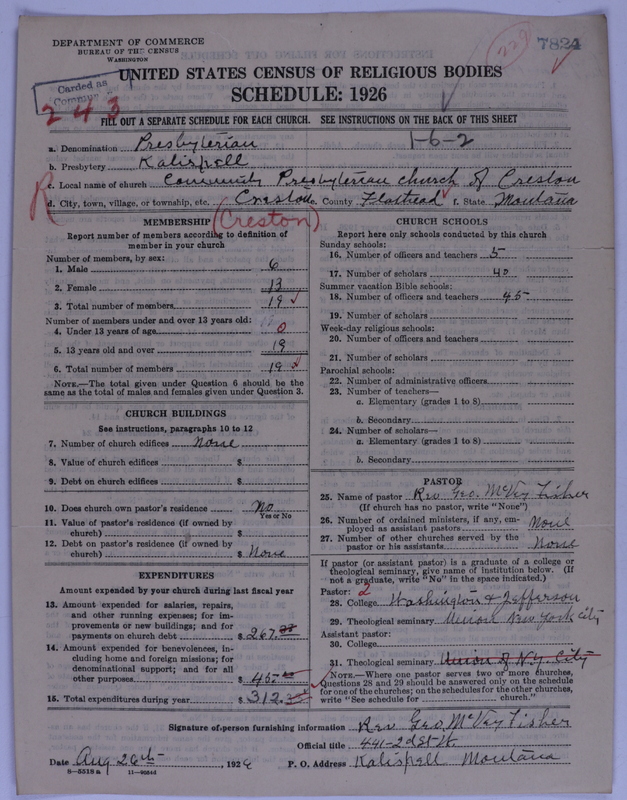 DEPARTMENT OF COMMERCE
BUREAU OF THE CENSUS
WASHINGTON
229
7824
UNITED STATES CENSUS OF RELIGIOUS BODIES
SCHEDULE: 1926
Carded as
243
FILL OUT A SEPARATE SCHEDULE FOR EACH CHURCH. SEE INSTRUCTIONS ON THE BACK OF THIS SHEET
a. Denomination Presbyterian 1-6-2
b. Presbytery Kalispell
R
c. Local name of church Community Presbyterian church of Creston
d. City, town, village, or township, etc. Creston e. County Flathead f. State Montana
(Creston)
MEMBERSHIP
Report number of members according to definition of
member in your church
Number of members, by sex:
1. Male 6
2. Female 13
3. Total number of members 19
Number of members under and over 13 years old:
4. Under 13 years of age 0
5. 13 years old and over 19
6. Total number of members 19
NOTE.—The total given under Question 6 should be the
same as the total of males and females given under Question 3.
CHURCH BUILDINGS
See instructions, paragraphs 10 to 12
7. Number of church edifices none
8. Value of church edifices $
9. Debt on church edifices $
10. Does church own pastor's residence No
Yes or No
11. Value of pastor's residence (if owned by
church) $
12. Debt on pastor's residence (if owned by
church) $ None
EXPENDITURES
Amount expended by your church during last fiscal year
13. Amount expended for salaries, repairs,
and other running expenses; for im-
provements or new buildings; and for
payments on church debt $ 267.
14. Amount expended for benevolences, in-
cluding home and foreign missions; for
denominational support; and for all
other purposes $ 45
15. Total expenditures during year $ 312.
CHURCH SCHOOLS
Report here only schools conducted by this church
Sunday schools:
16. Number of officers and teachers 5
17. Number of scholars 40
Summer vacation Bible schools:
18. Number of officers and teachers 45
19. Number of scholars
Week-day religious schools:
20. Number of officers and teachers
21. Number of scholars
Parochial schools:
22. Number of administrative officers
23. Number of teachers—
a. Elementary (grades 1 to 8)
b. Secondary
24. Number of scholars—
a. Elementary (grades 1 to 8)
b. Secondary
PASTOR
25. Name of pastor Rev Geo. McVey Fisher
(If church has no pastor, write "None")
26. Number of ordained ministers, if any, em-
ployed as assistant pastors None
27. Number of other churches served by the
pastor or his assistants None
If pastor (or assistant pastor) is a graduate of a college or
theological seminary, give name of institution below. (If
not a graduate, write "No" in the space indicated.)
Pastor: 2
28. College Washington & Jefferson
29. Theological seminary Union New York City
Assistant pastor:
30. College
31. Theological seminary Union of N.Y. City
NOTE.—Where one pastor serves two or more churches,
Questions 28 and 29 should be answered only on the schedule
for one of the churches; on the schedules for the other churches,
write "See schedule for church."
Signature of person furnishing information Rev Geo McVey Fisher
Official title 441-2d St W.
Date Aug 26th, 1926 P. O. Address Kalispell Montana
8-5518a 11-9034d